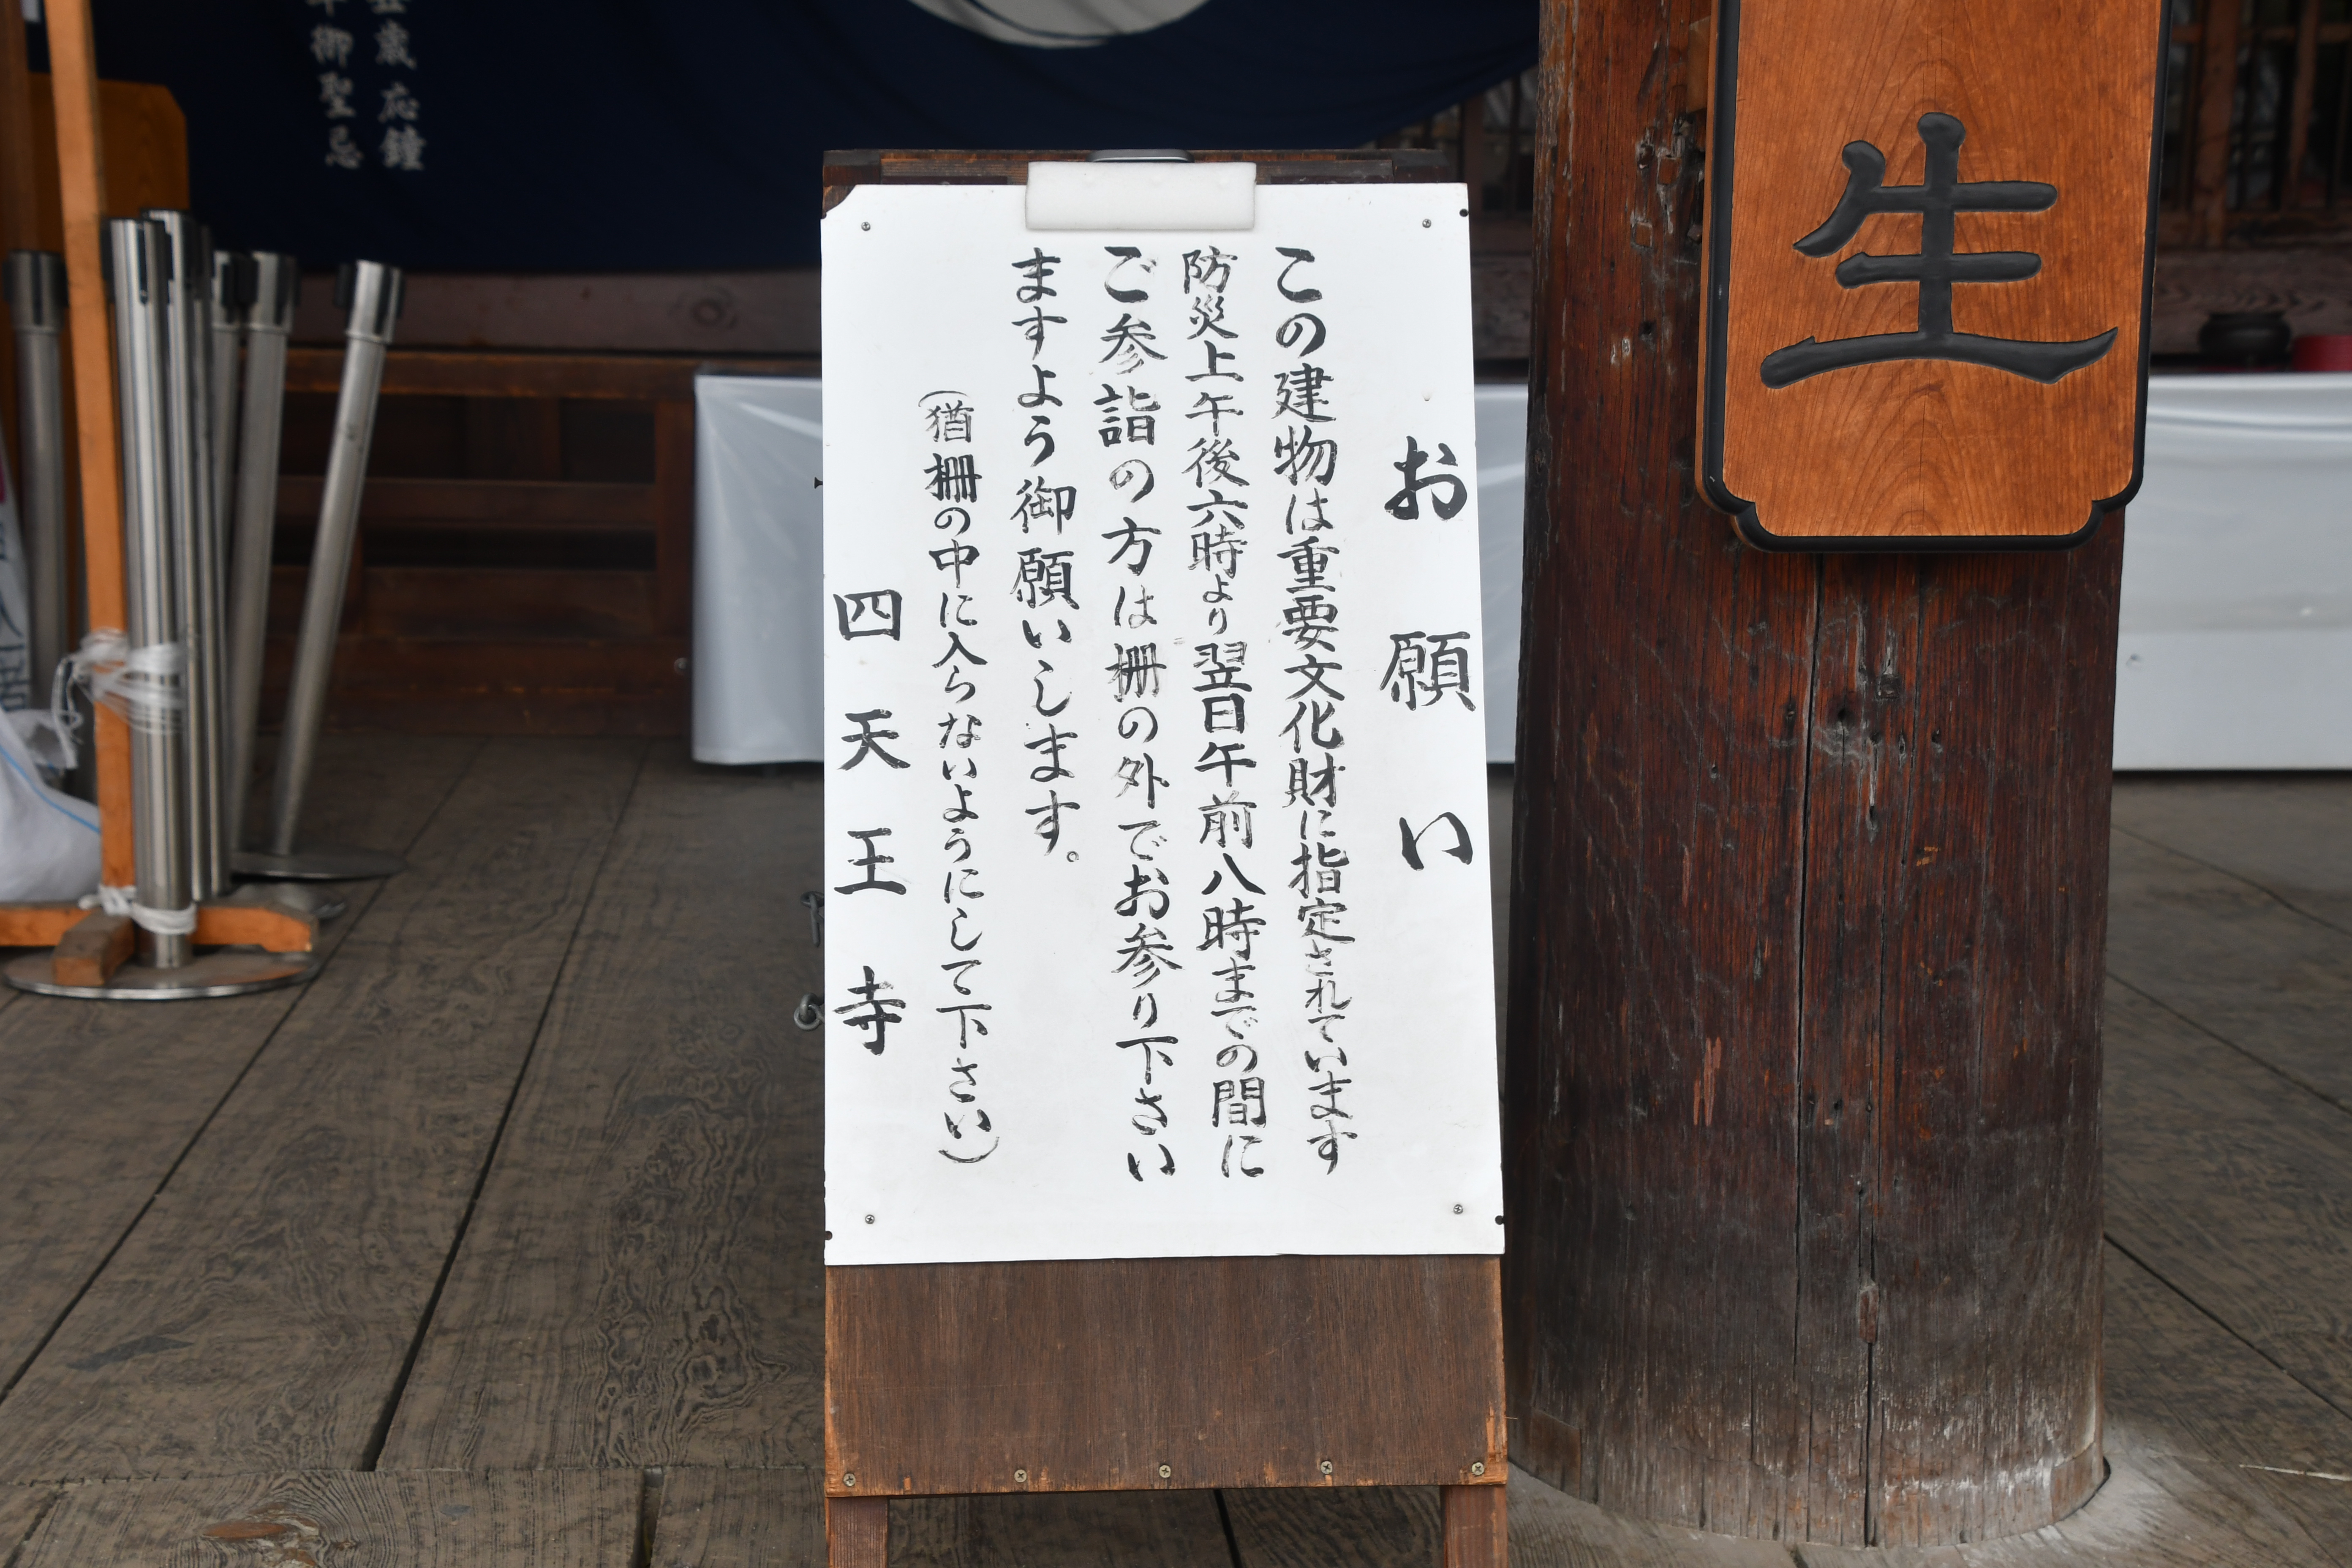 生
お願い
この建物は重要文化財に指定されています
防災上午後六時より翌日午前八時までの間に
ご参詣の方は柵の外でお参り下さい
ますよう御願いします。
（猶柵の中に入らないようにして下さい）
四天王寺
歳応鐘
御聖忌